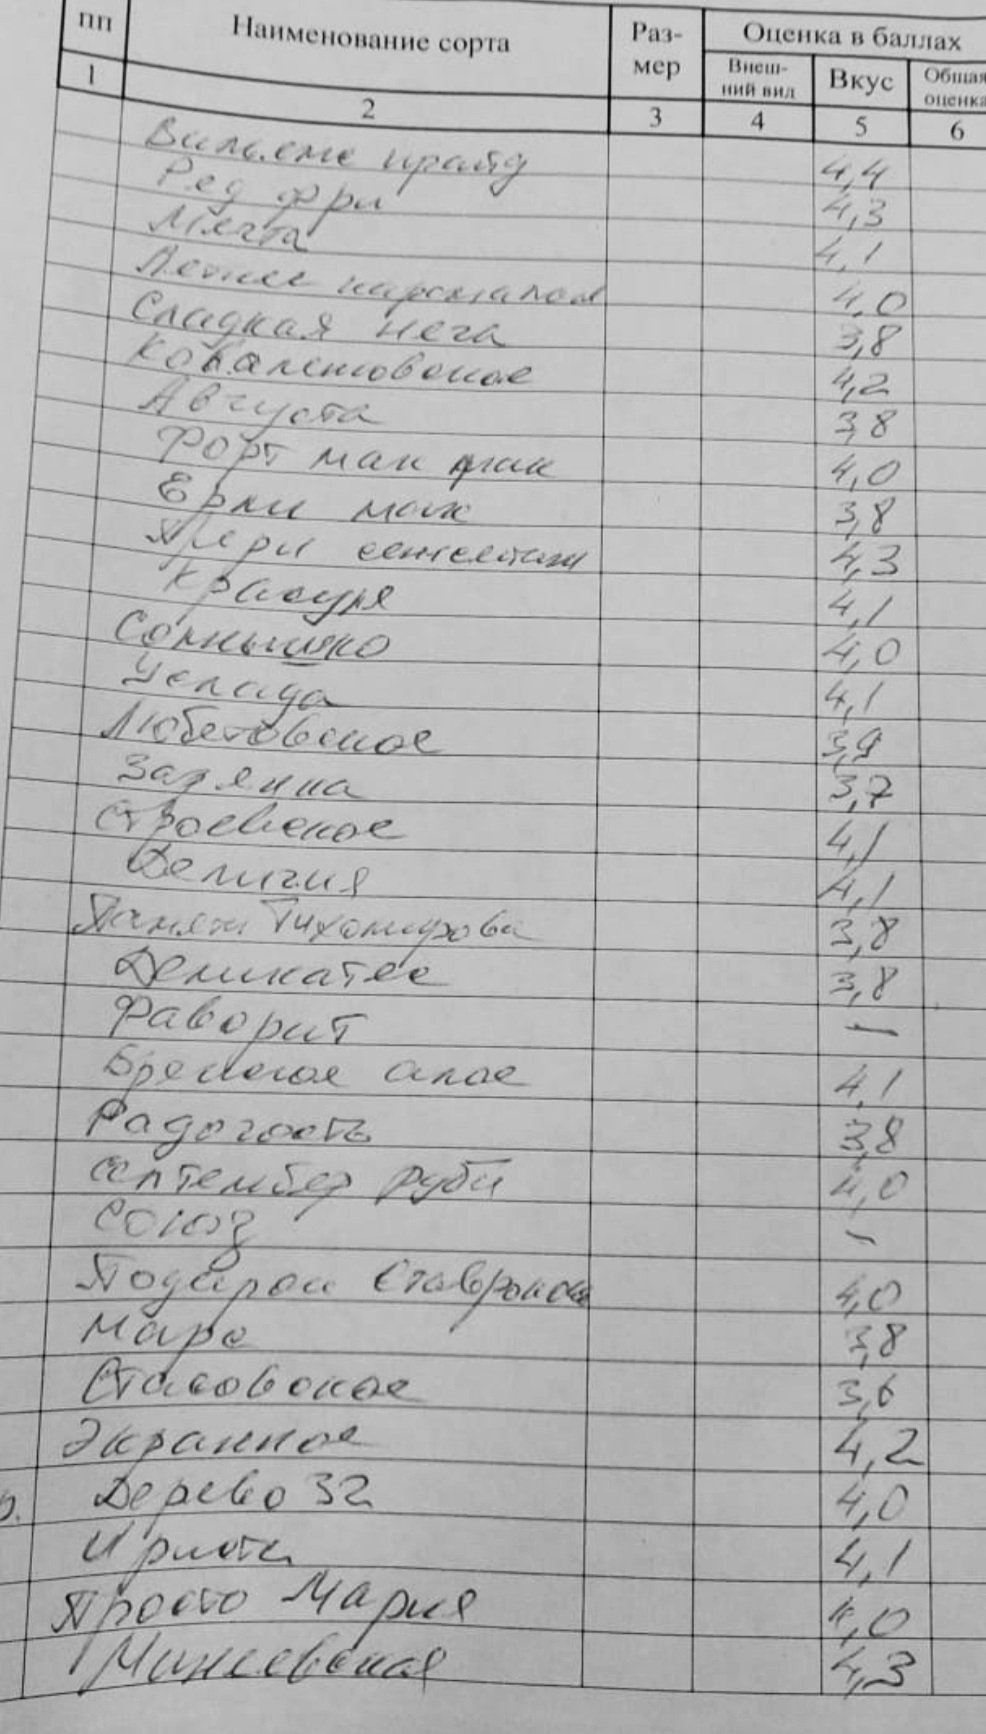 пп Наименование сорта Раз-мер Оценка в баллах
Внеш-ний вид Вкус Общая оценка
1 2 3 4 5 6
Вильямс прайд 4,4
Ред фри 4,3
Мечта 4,1
Летнее 4,0
Сладкая нега 3,8
Коваленковское 4,2
Августа 3,8
Форт мак 4,0
Ерли мак 3,8
4,3
Красуля 4,1
Солнышко 4,0
Услада 4,1
3,9
Зарянка 3,7
Строевское 4,1
Делигия 4,1
Памяти Тихомирова 3,8
Деликатес 3,8
Фаворит –
алое 4,1
Радогость 3,8
септембер руби 4,0
Союз –
Подарок 4,0
Марс 3,8
3,6
Экранное 4,2
Дерево 32 4,0
4,1
Просто Мария 4,0
4,3